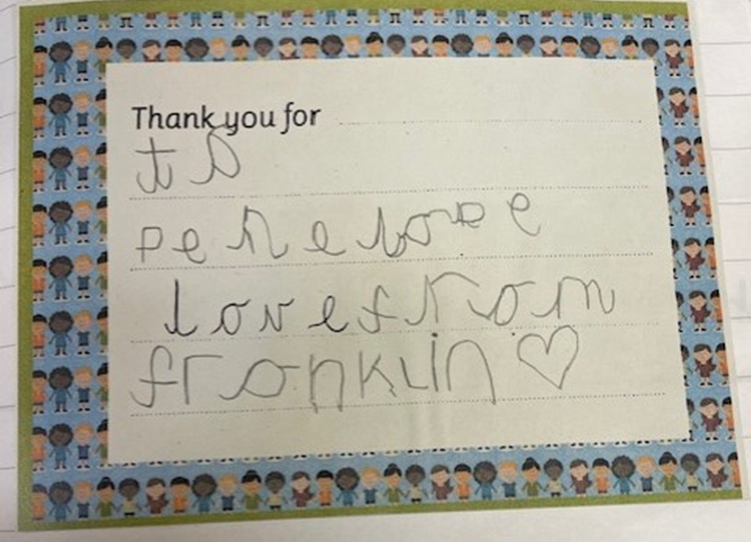 Thank you for
to
penelope
love from
franklin